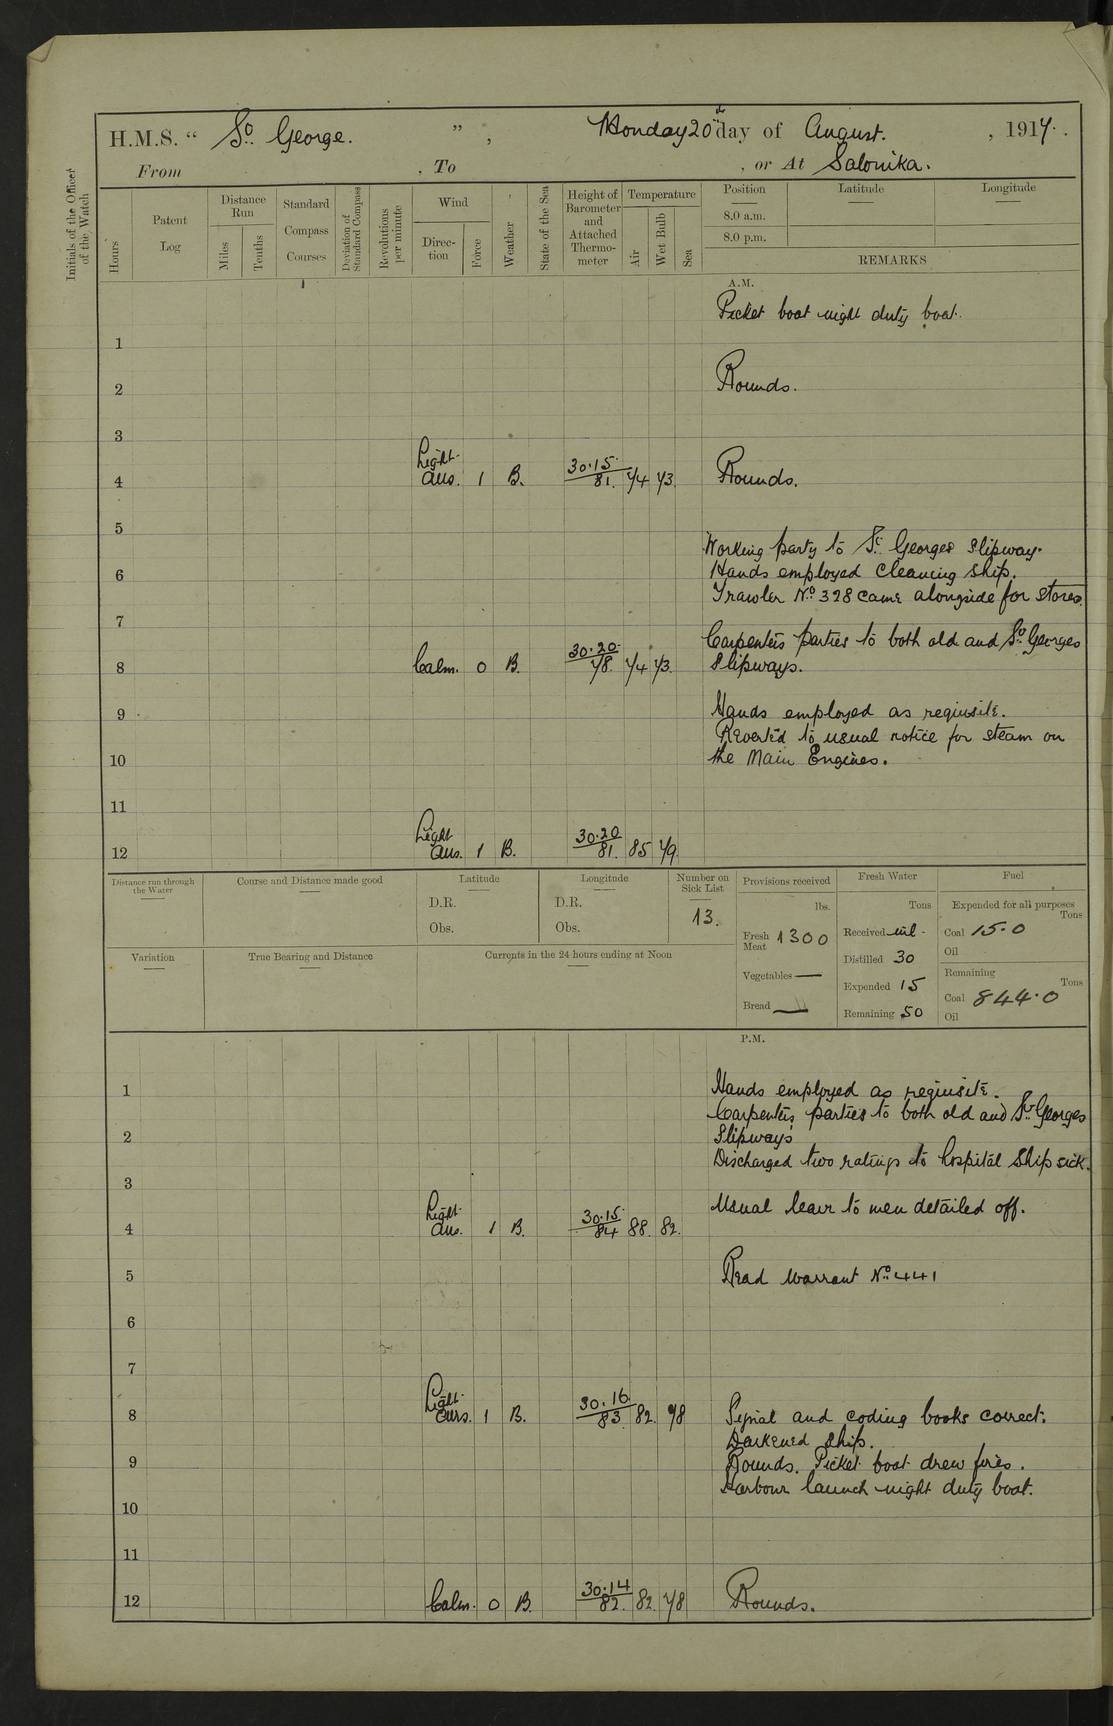 H.M.S. " St. George. " , Monday 20th day of August. , 1917.
From , To , or At Salonika.
Initials of the Officer of the Watch
Hours
Patent Log
Distance Run
Miles
Tenths
Standard Compass Courses
Deviation of Standard Compass
Revolutions per minute
Wind
Direction
Force
Weather
State of the Sea
Height of Barometer and Attached Thermometer
Temperature
Air
Wet Bulb
Sea
Position
8.0 a.m.
8.0 p.m.
Latitude
Longitude
REMARKS
A.M.
Picket boat night duty boat.
1
2 Rounds.
3
4 Light airs. 1 B. 30.15 81. 74 73. Rounds.
5
Working party to St. Georges Slipway.
6 Hands employed cleaning ship.
Trawler No. 328 came alongside for stores.
7
Carpenters parties to both old and St. Georges
8 Calm. 0 B. 30.20. 78. 74 73. Slipways.
9 Hands employed as requisite.
Reverted to usual notice for steam on
10 the Main Engines.
11
12 Light airs. 1 B. 30.20 81. 85 79.
Distance run through the Water
Course and Distance made good
Latitude
D.R.
Obs.
Longitude
D.R.
Obs.
Number on Sick List
13.
Provisions received
lbs.
Fresh Meat 1300
Vegetables —
Bread —
Fresh Water
Tons
Received nil -
Distilled 30
Expended 15
Remaining 50
Fuel
Expended for all purposes
Tons
Coal 15.0
Oil
Remaining
Tons
Coal 844.0
Oil
Variation
True Bearing and Distance
Currents in the 24 hours ending at Noon
P.M.
1 Hands employed as requisite.
Carpenters parties to both old and St. Georges
2 Slipways
Discharged two ratings to Hospital Ship sick.
3
Usual leave to men detailed off.
4 Light airs. 1 B. 30.15 84 88. 82.
5 Read Warrant No. 441
6
7
8 Light airs. 1 B. 30.16 83 82. 78 Signal and coding books correct.
Darkened ship.
9 Rounds. Picket boat drew fires.
Harbour launch night duty boat.
10
11
12 Calm. 0 B. 30.14 82. 82. 78 Rounds.